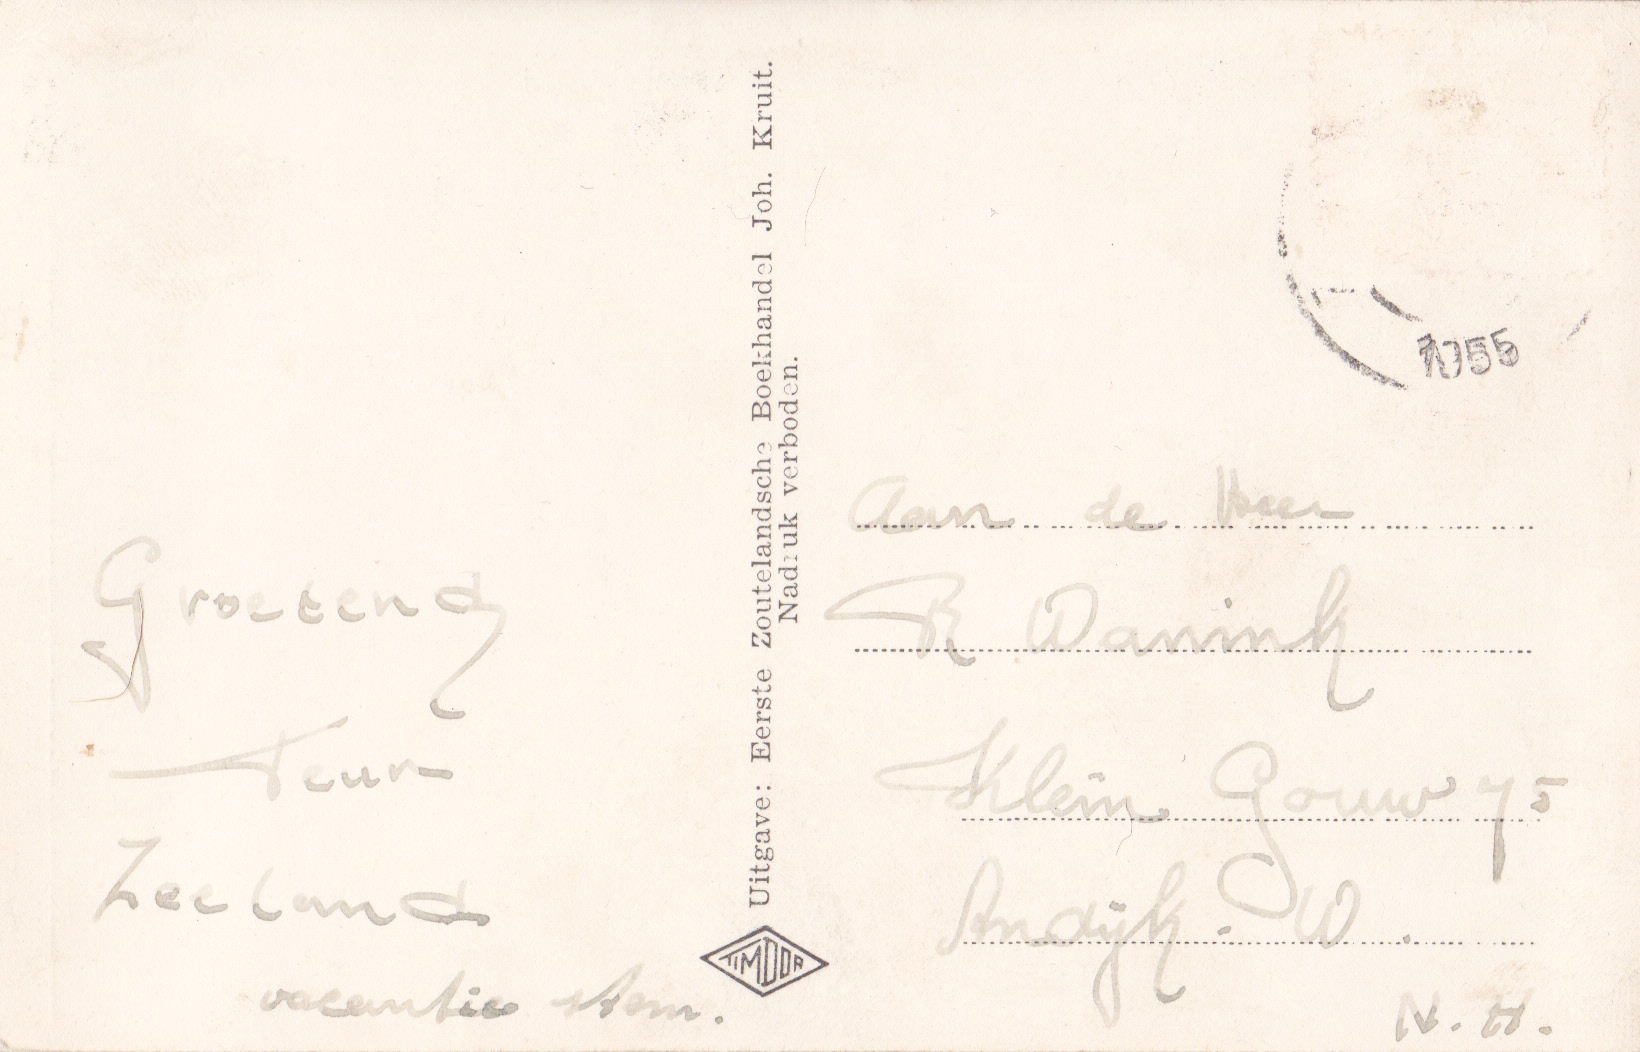 Groetend
Teun
Zeeland
vacantie stem.
Uitgave: Eerste Zoutelandsche Boekhandel Joh. Kruit.
Nadruk verboden.
TIMDOR
1955
Aan de Heer
R Wanink
Klein Gouw 75
Andijk. W.
N.H.